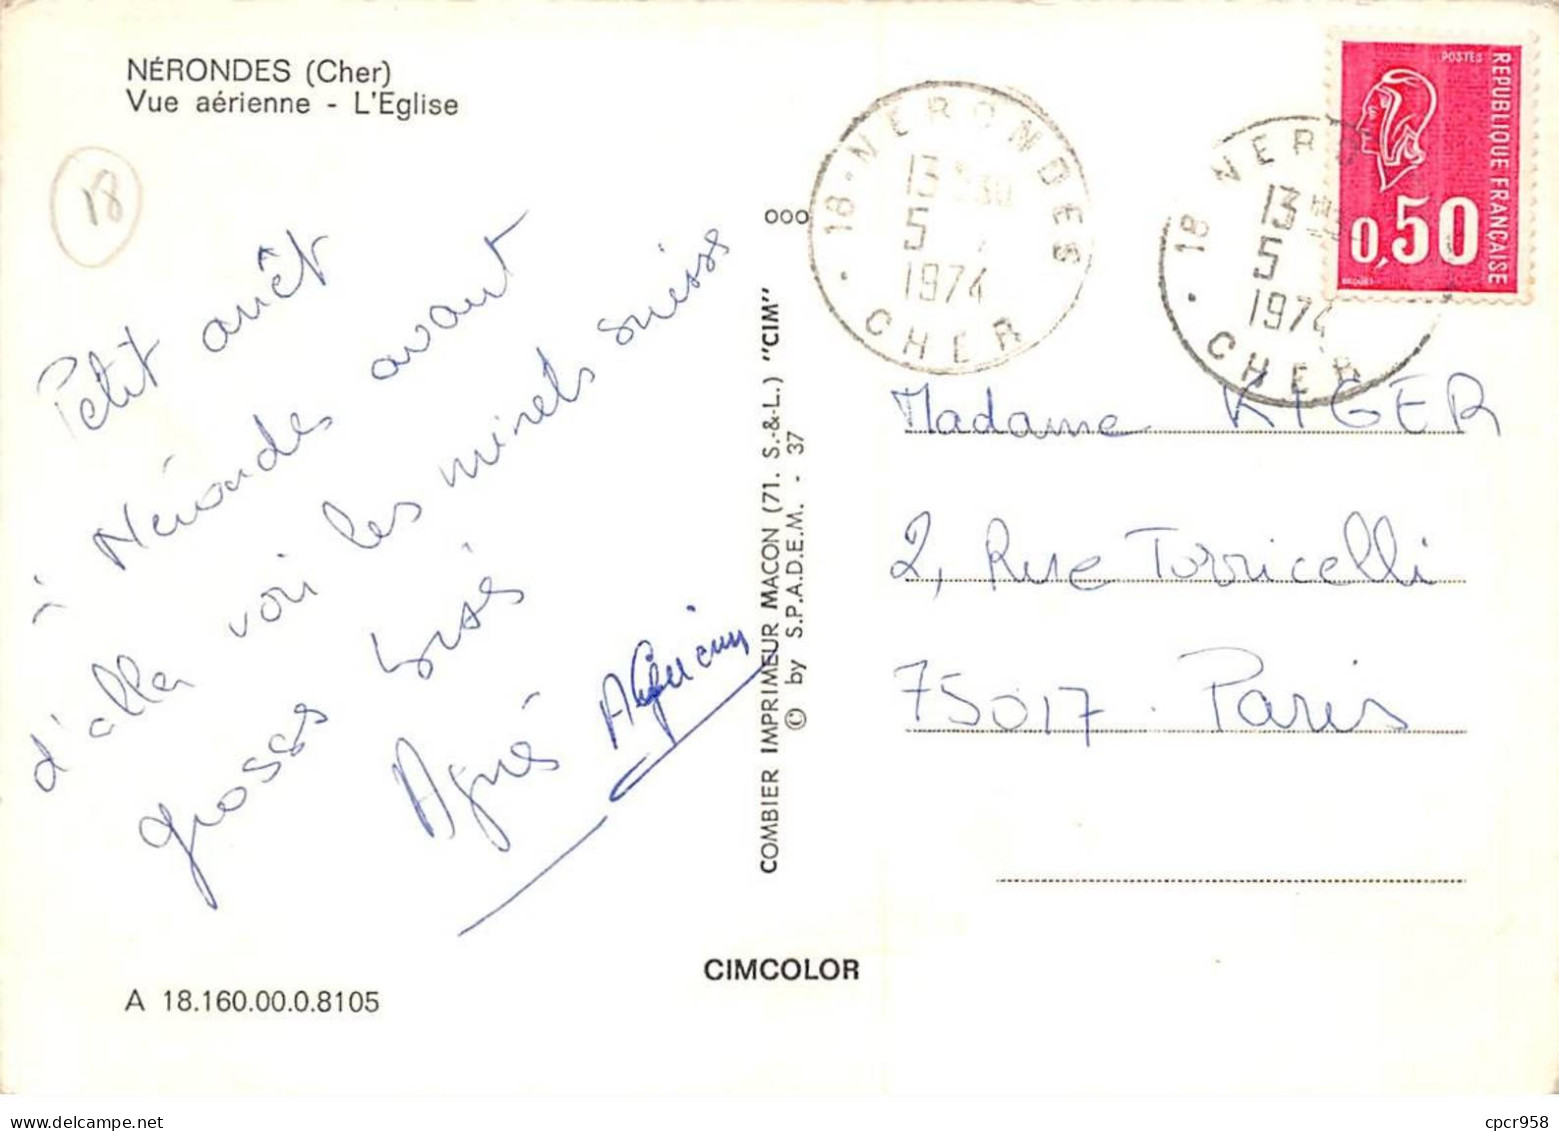 NÉRONDES (Cher)
Vue aérienne - L'Eglise
18
Petit arrêt
à Nérondes avant
d'aller voir les minets suisses
grosses bises
Agnès
18 · NERONDES
13 H30
5
1974
· CHER
18 NERO
13
5
1974
· CHER
POSTES
REPUBLIQUE FRANÇAISE
0,50
BEQUET
Madame KIGER
2, Rue Torricelli
75017 . Paris
COMBIER IMPRIMEUR MACON (71. S.-&-L.) "CIM"
© by S.P.A.D.E.M. - 37
CIMCOLOR
A 18.160.00.0.8105
cpcr958